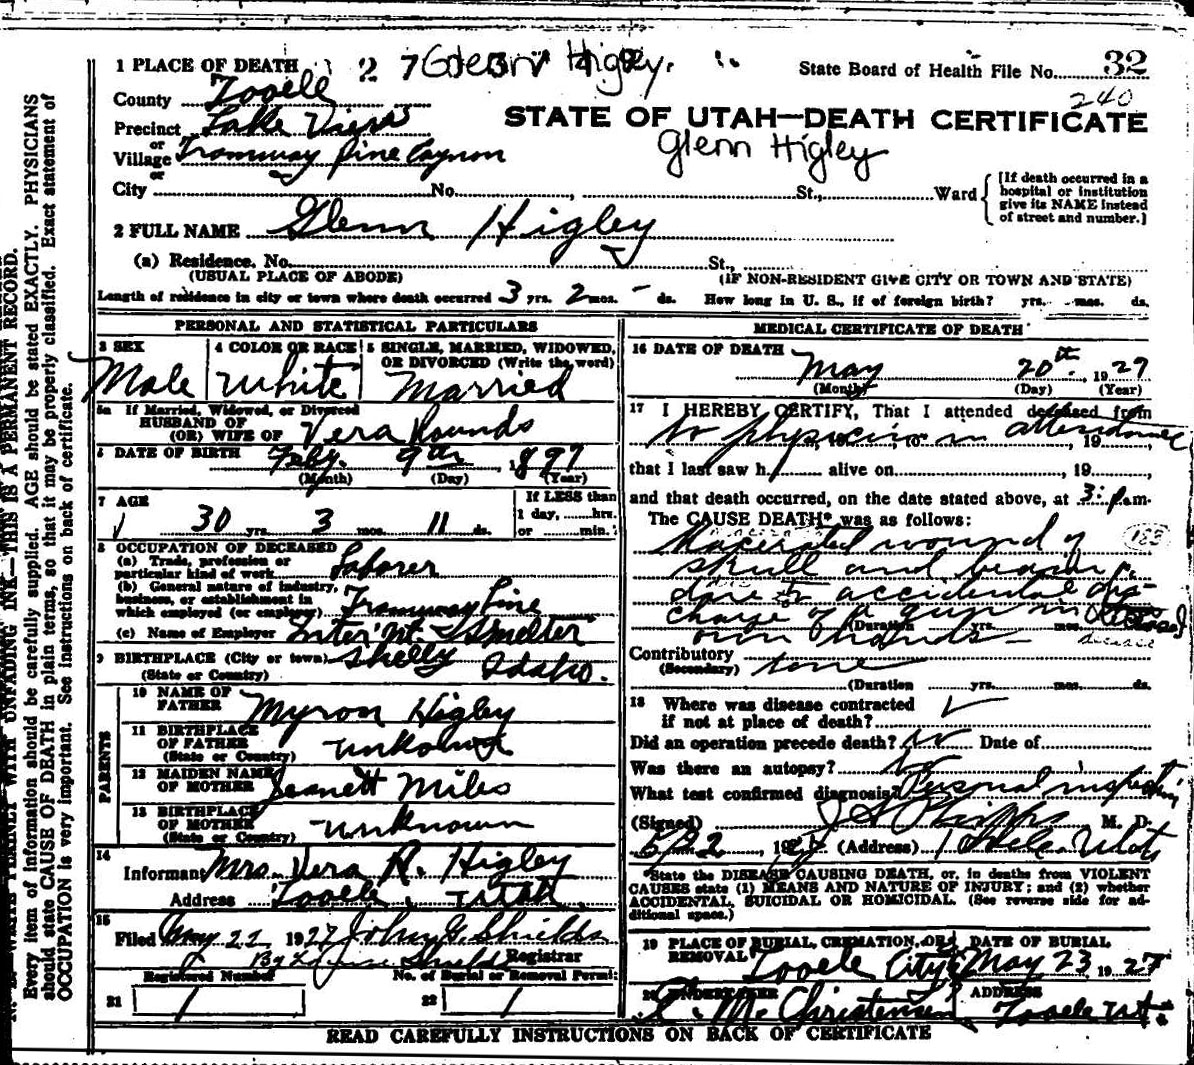 1 PLACE OF DEATH
Glenn Higley.
State Board of Health File No. 32
240
County Tooele
STATE OF UTAH—DEATH CERTIFICATE
Precinct Lake View
or
Village Tramway Pine Canyon
Glenn Higley
or
City No. St., Ward
[If death occurred in a
hospital or institution
give its NAME instead
of street and number.]
2 FULL NAME Glenn Higley
(a) Residence. No. St.,
(USUAL PLACE OF ABODE) (IF NON-RESIDENT GIVE CITY OR TOWN AND STATE)
Length of residence in city or town where death occurred 3 yrs. 2 mos. - ds. How long in U. S., if of foreign birth? yrs. mos. ds.
PERSONAL AND STATISTICAL PARTICULARS
3 SEX
Male
4 COLOR OR RACE
White
5 SINGLE, MARRIED, WIDOWED,
OR DIVORCED (Write the word)
Married
5a If Married, Widowed, or Divorced
HUSBAND OF
(OR) WIFE OF Vera Rounds
6 DATE OF BIRTH Feby. 9th 1897
(Month) (Day) (Year)
7 AGE
30 yrs. 3 mos. 11 ds.
If LESS than
1 day, hrs.
or min.
8 OCCUPATION OF DECEASED
(a) Trade, profession or
particular kind of work Laborer
(b) General nature of industry,
business, or establishment in
which employed (or employer) Tramway Line
(c) Name of Employer Inter'Mt. Smelter
9 BIRTHPLACE (City or town) Shelly Idaho.
(State or Country)
PARENTS
10 NAME OF
FATHER Myron Higley
11 BIRTHPLACE
OF FATHER unknown
(State or Country)
12 MAIDEN NAME
OF MOTHER Jeanett Miles
13 BIRTHPLACE
OF MOTHER unknown
(State or Country)
14
Informant Mrs. Vera R. Higley
Address Tooele, Utah.
15
Filed May 22 1927 John G. Shields
By Shields Registrar
Registered Number No. of Burial or Removal Permit
21 1 22 1
MEDICAL CERTIFICATE OF DEATH
16 DATE OF DEATH
May 20th. 1927
(Month) (Day) (Year)
17 I HEREBY CERTIFY, That I attended deceased from
No physician in attendance, 19
that I last saw h alive on , 19
and that death occurred, on the date stated above, at 3: p m.
The CAUSE DEATH* was as follows:
Macerated wound of
skull and brain
due to accidental dis-
charge of a gun in deceased
own hands
(Duration yrs. mos. ds.
Contributory none
(Secondary)
(Duration yrs. mos. ds.
18 Where was disease contracted
if not at place of death?
Did an operation precede death? No Date of
Was there an autopsy? No
What test confirmed diagnosis? Personal inspection
(Signed) J A Phipps M. D.
5/22, 1927 (Address) Tooele Utah
*State the DISEASE CAUSING DEATH, or, in deaths from VIOLENT
CAUSES state (1) MEANS AND NATURE OF INJURY; and (2) whether
ACCIDENTAL, SUICIDAL OR HOMICIDAL. (See reverse side for ad-
ditional space.)
19 PLACE OF BURIAL, CREMATION, OR
REMOVAL Tooele City
DATE OF BURIAL
May 23 1927
20 UNDERTAKER
M. Christensen
ADDRESS
Tooele Ut.
READ CAREFULLY INSTRUCTIONS ON BACK OF CERTIFICATE
WRITE PLAINLY WITH UNFADING INK—THIS IS A PERMANENT RECORD.
Every item of information should be carefully supplied. AGE should be stated EXACTLY. PHYSICIANS
should state CAUSE OF DEATH in plain terms, so that it may be properly classified. Exact statement of
OCCUPATION is very important. See instructions on back of certificate.